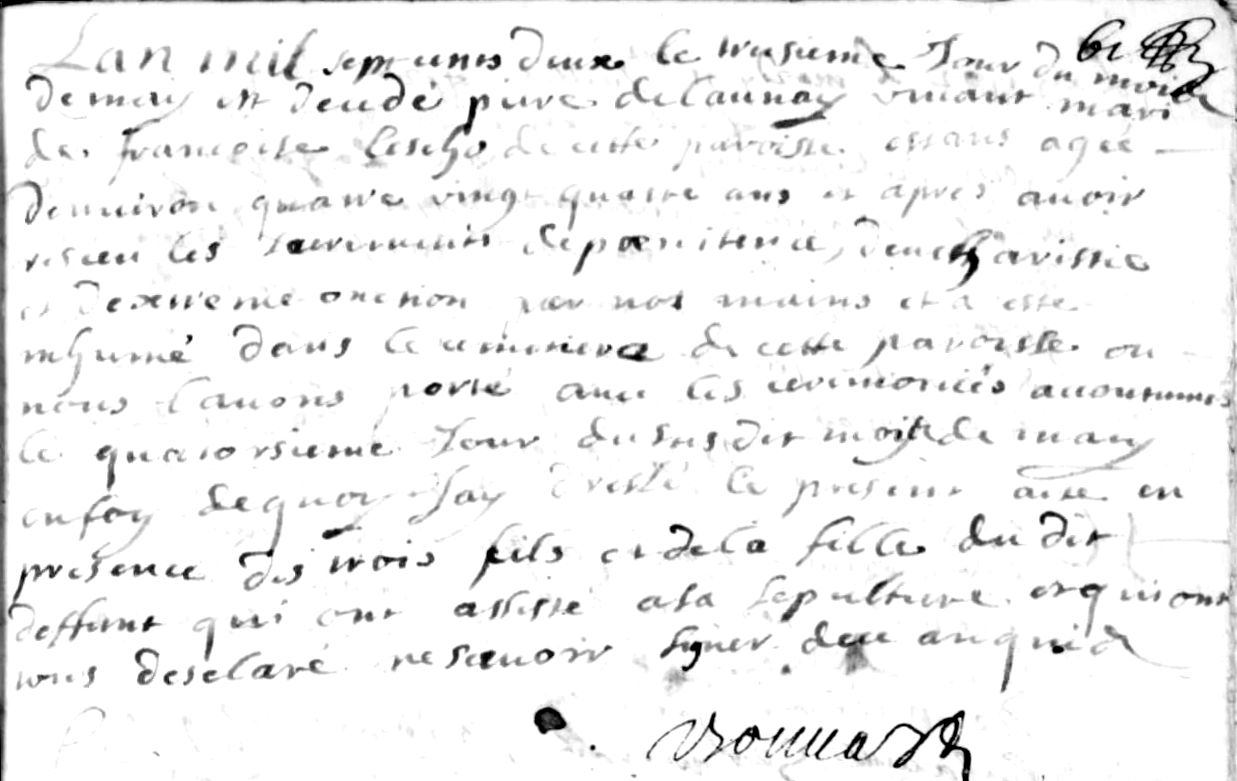 Lan mil sept cents deux le treisieme Jour du mois
de may est decedé pierre delaunay vivant mari
de francoise de cette paroisse estans agée
denuiron quatre vingt quatre ans et apres auoir
reseu les sacrements de pœnitence, deucharistie
et dextreme onction par nos mains et a este
inhumé dans le cimitiere de cette paroisse ou
nous lauons porté auec les ceremonies acoutumes
le quatorsieme Jour du susdit mois de may
en foy de quoy Jay dressé le present acte en
presence des trois fils et de la fille du dit
deffunt qui ont assisté a sa sepulture et qui ont
tous desclaré ne scauoir signer de ce anquis